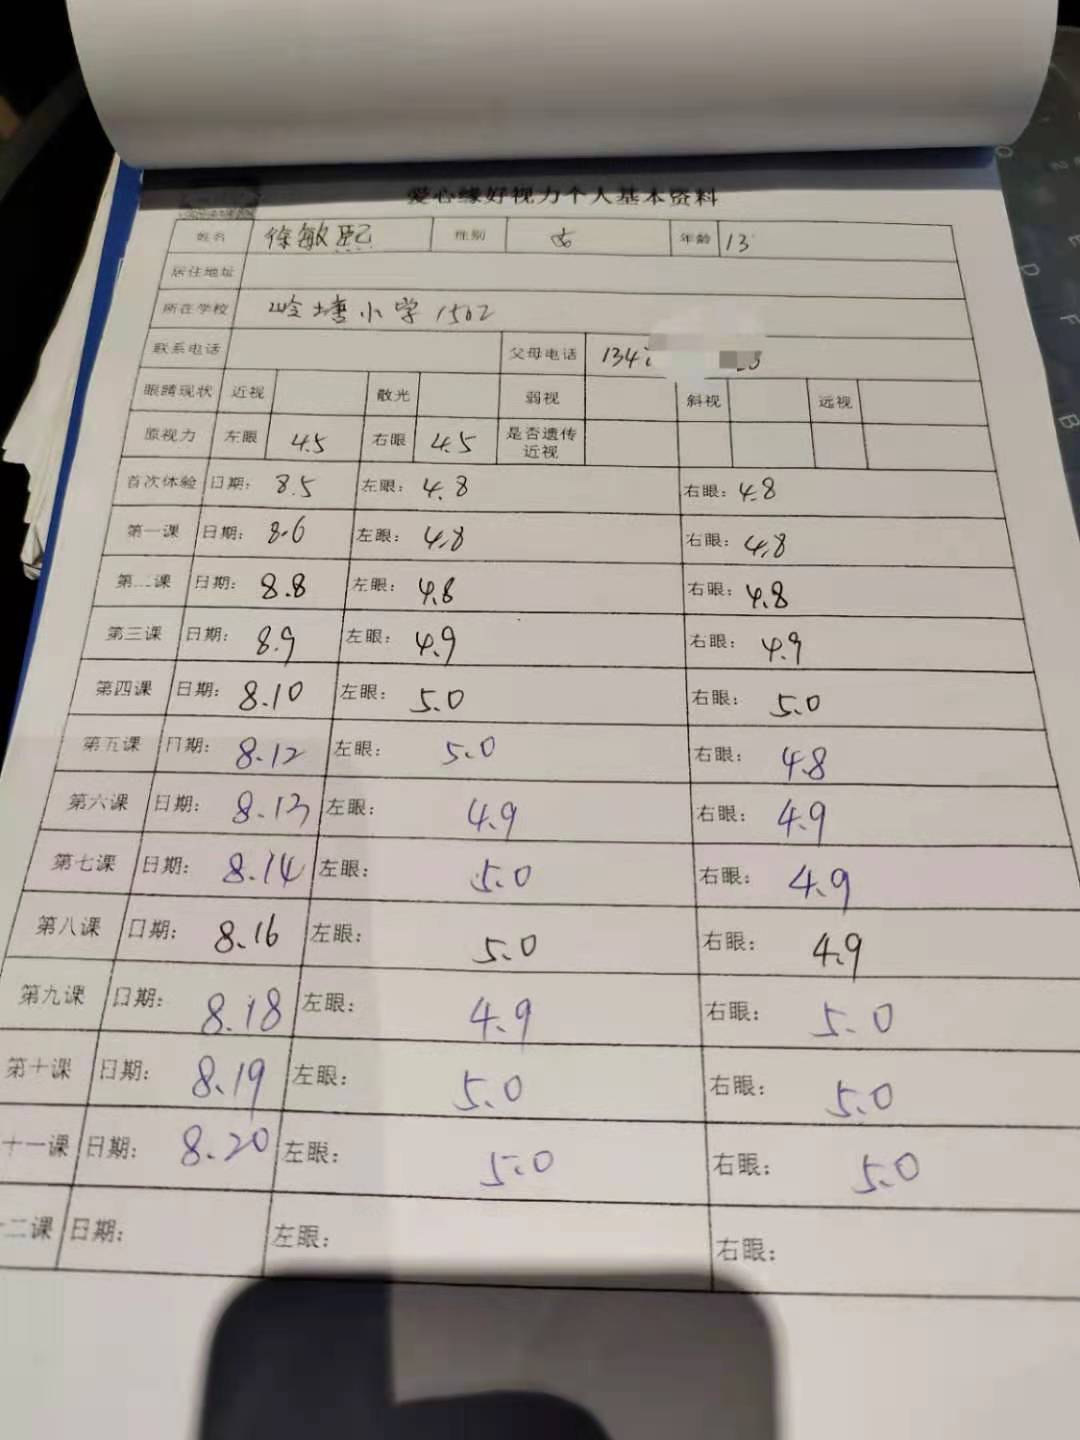 爱心缘好视力个人基本资料
姓名 徐敏熙 性别 女 年龄 13
居住地址
所在学校 岭塘小学1502
联系电话 父母电话 134
眼睛现状 近视 散光 弱视 斜视 远视
原视力 左眼 4.5 右眼 4.5 是否遗传近视
首次体验 日期: 8.5 左眼: 4.8 右眼: 4.8
第一课 日期: 8.6 左眼: 4.8 右眼: 4.8
第二课 日期: 8.8 左眼: 4.8 右眼: 4.8
第三课 日期: 8.9 左眼: 4.9 右眼: 4.9
第四课 日期: 8.10 左眼: 5.0 右眼: 5.0
第五课 日期: 8.12 左眼: 5.0 右眼: 4.8
第六课 日期: 8.13 左眼: 4.9 右眼: 4.9
第七课 日期: 8.14 左眼: 5.0 右眼: 4.9
第八课 日期: 8.16 左眼: 5.0 右眼: 4.9
第九课 日期: 8.18 左眼: 4.9 右眼: 5.0
第十课 日期: 8.19 左眼: 5.0 右眼: 5.0
十一课 日期: 8.20 左眼: 5.0 右眼: 5.0
二课 日期: 左眼: 右眼: